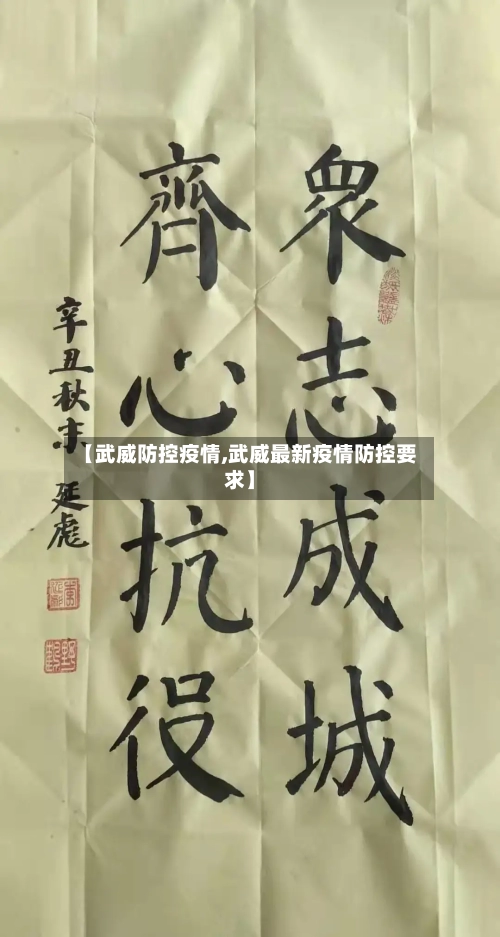 眾志成城
齊心抗役
辛丑秋末 延彪
【武威防控疫情,武威最新疫情防控要
求】